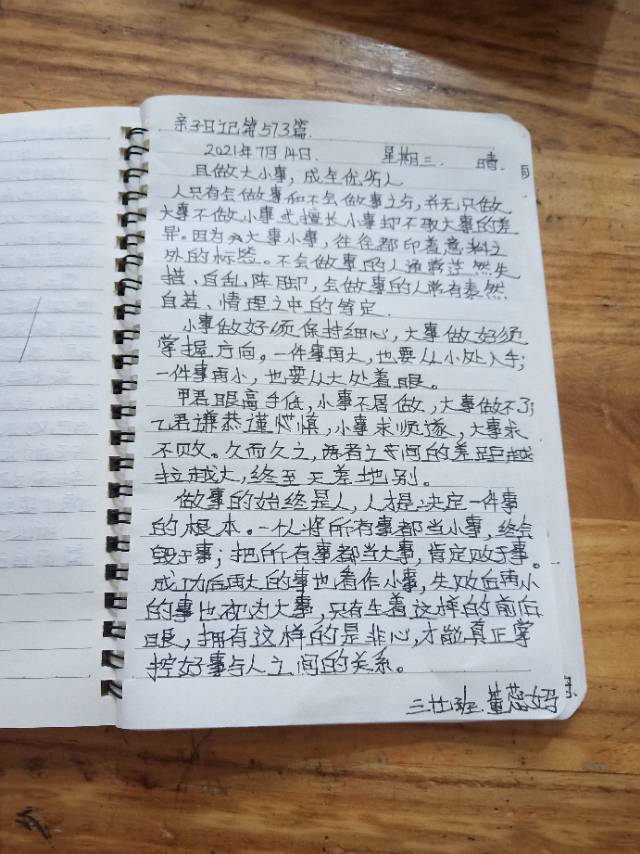 亲子日记第573篇.
2021年7月14日. 星期三. 晴.
且做大小事，成生优劣人
人只有会做事和不会做事之分，并无只做
大事不做小事或擅长小事却不取大事的差
异。因为大事小事，往往都印着意料之
外的标签。不会做事的人通常茫然失
措、自乱阵脚，会做事的人常有泰然
自若、情理之中的笃定.
小事做好须保持细心，大事做好须
掌握方向。一件事再大，也要从小处入手；
一件事再小，也要从大处着眼。
甲君眼高手低，小事不屑做，大事做不了；
乙君谦恭谨慎，小事求顺遂，大事求
不败。久而久之，两者之间的差距越
拉越大，终至天差地别。
做事的始终是人，人才是决定一件事
的根本。一个人将所有事都当小事，终会
毁于事；把所有事都当大事，肯定败于事。
成功后再大的事也看作小事，失败后再小
的事也视为大事，只有生着这样的前后
眼，拥有这样的是非心，才能真正掌
控好事与人之间的关系。
三廿班.董蕊妈